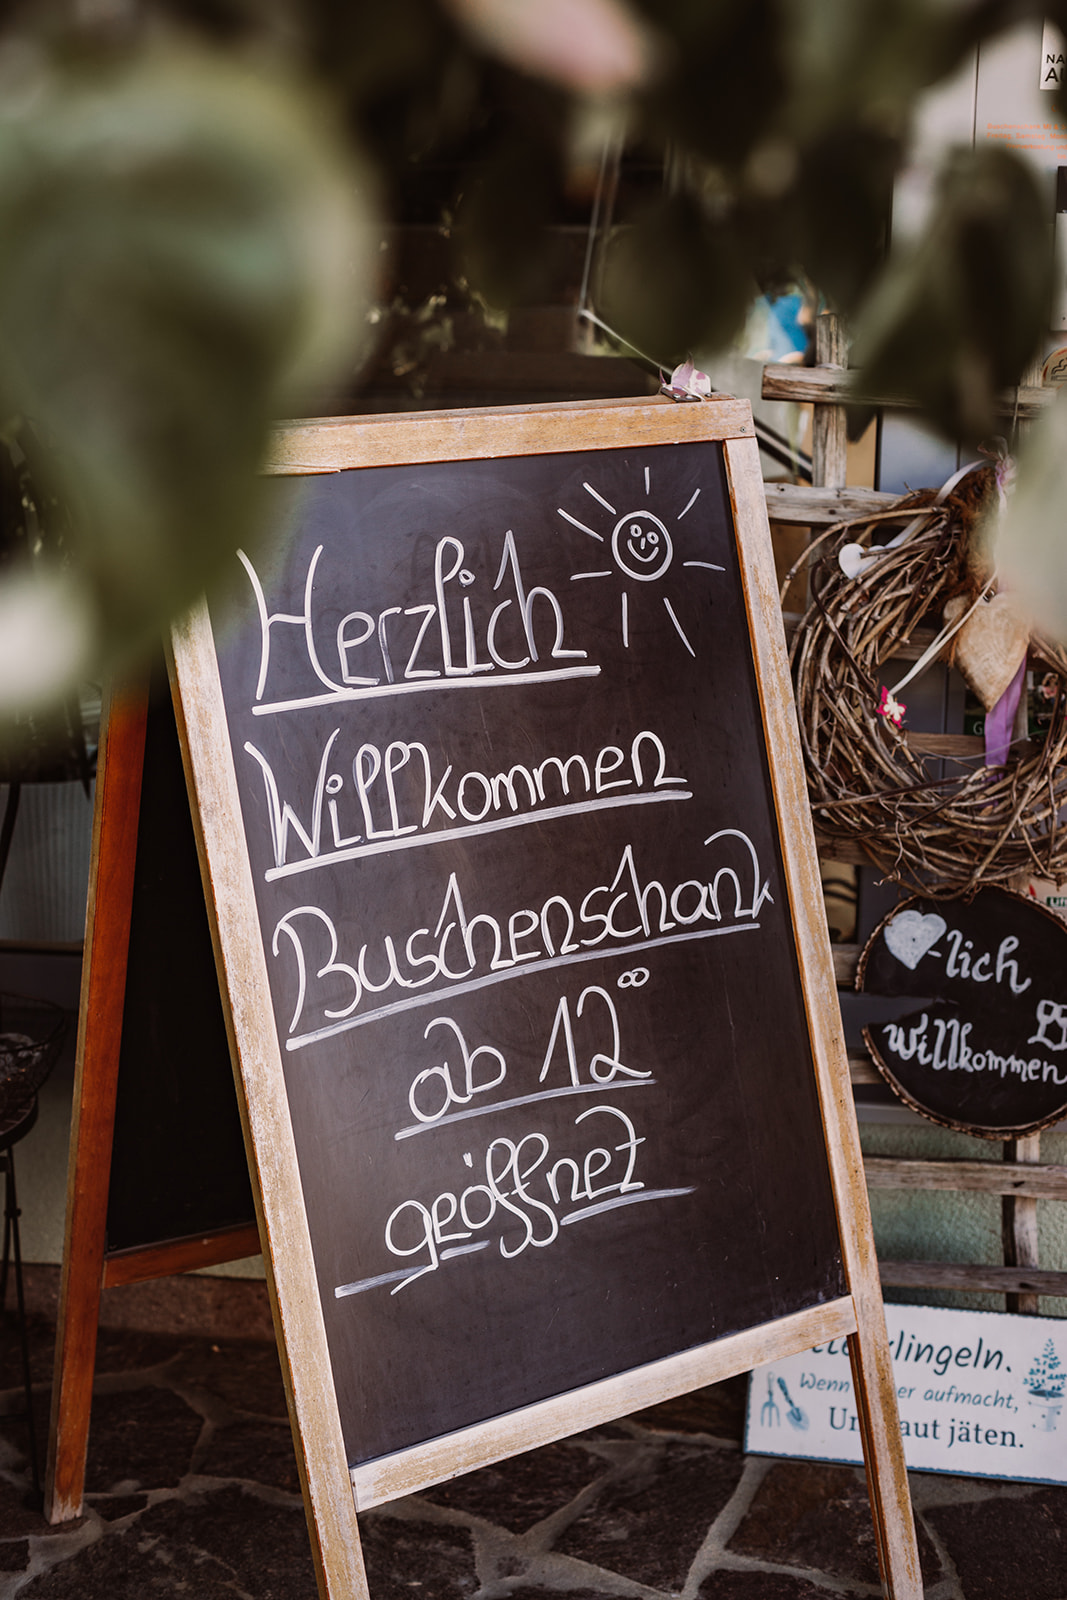 Herzlich
Willkommen
Buschenschank
ab 12°°
geöffnet
-lich
Willkommen
klingeln.
Wenn er aufmacht,
Unkraut jäten.